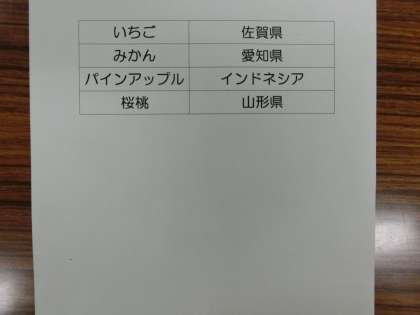 いちご 佐賀県
みかん 愛知県
パインアップル インドネシア
桜桃 山形県